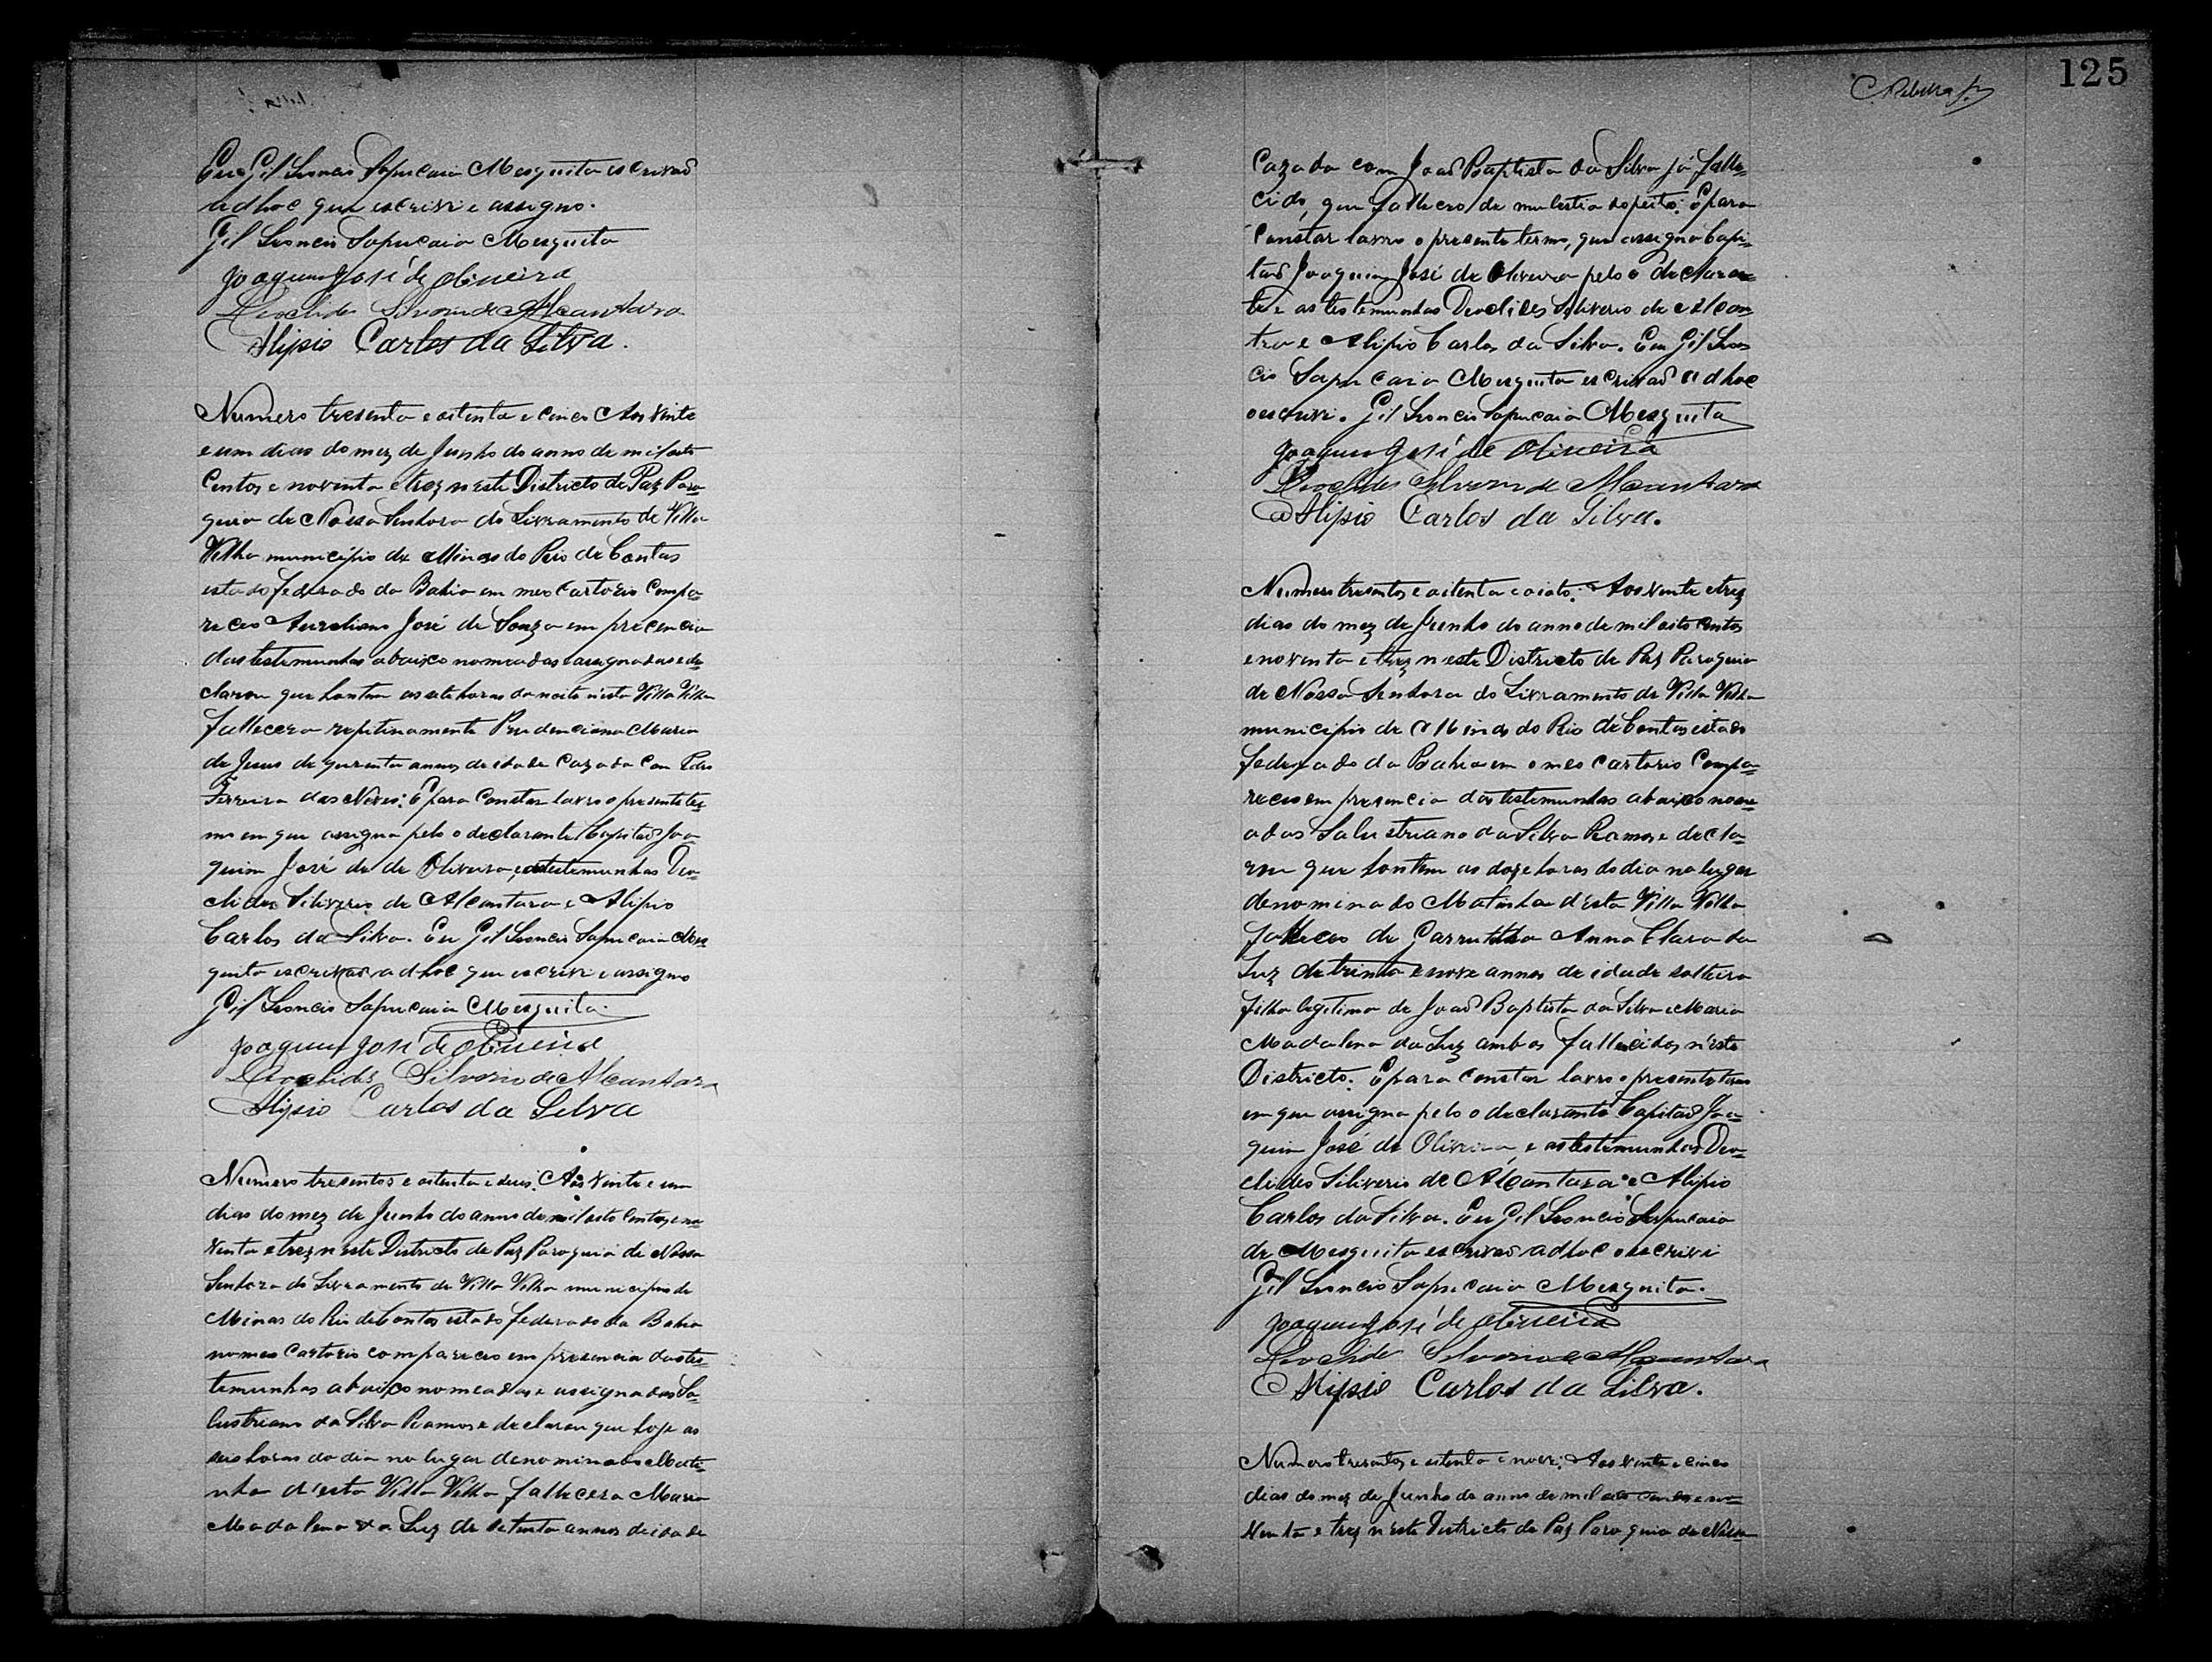 Eu Gil Leoncio Sapucaia Mesquita escrivaõ
adhoc que escrivi e assigno.
Gil Leoncio Sapucaia Mesquita
Joaquim José de Oliveira
Deoclides Silverio de Alcantara
Alipio Carlos da Silva.
Numero tresento e oitenta e cinco Aos vinte
e um dias do mez de Junho do anno de mil oito
centos e noventa e trez n'este Districto de Paz Paro-
quia de Nossa Senhora do Livramento de Villa
Velha municipio de Minas do Rio de Contas
estado federado da Bahia em meo Cartorio compa-
receo Aureliano José de Souza em precencia
das testemunhas abaixo nomeadas e assignadas e de-
clarou que hontem as sete horas da noite n'esta Villa Velha
fallecera repitinamente Prudenciana Maria
de Jesus de quarenta annos de idade cazada com Pedro
Ferreira das Neves: E para constar lavro o presente ter-
mo em que assigna pelo o declarante Capitaõ Joa-
quim José de de Oliveira, e as testemunhas Deo-
clides Siliverio de Alcantara e Alipio
Carlos da Silva. Eu Gil Leoncio Sapucaia Mes-
quita escrivaõ adhoc que escrivi e assigno
Gil Leoncio Sapucaia Mesquita.
Joaquim José de Oliveira
Deoclides Silverio de Alcantara
Alipio Carlos da Silva
Numero tresentos e oitenta e seis. Aos vinte e um
dias do mez de Junho do anno de mil oito centos e no-
venta e trez n'este Districto de Paz Paroquia de Nossa
Senhora do Livramento de Villa Velha municipio de
Minas do Rio de Contas estado federado da Bahia
no meo Cartorio compareceo em presencia das tes-
temunhas abaixo nomeadas e assignadas Sa-
lustriano da Silva Ramos e declarou que hoje as
seis horas do dia no lugar denominado Mati-
nha d'esta Villa Velha fallecera Maria
Madalena da Luz de setenta annos de idade
125
cazada com Joaõ Baptista da Silva já falle-
cido, que falleceo de mulestia do peito: E para
constar lavro o presente termo, que assigna Capi-
taõ Joaquim José de Oliveira pelo o declaran-
te e as testemunhas Deoclides Siliverio de Alcan-
tra e Alipio Carlos da Silva. Eu Gil Leon-
cio Sapucaia Mesquita escrivaõ adhoc
o escrivi. Gil Leoncio Sapucaia Mesquita
Joaquim José de Oliveira
Deoclides Silverio de Alcantara
Alipio Carlos da Silva.
Numero tresentos e oitenta e oito: Aos vinte e trez
dias do mez de Junho do anno de mil oito centos
e noventa e trez n'este Districto de Paz Paroquia
de Nossa Senhora do Livramento de Villa Velha
municipio de Minas do Rio de Contas estado
federado da Bahia em o meo cartorio compa-
receo em presencia das testemunhas abaixo nome-
adas Salustriano da Silva Ramos e decla-
rou que hontem as doze horas do dia no lugar
denominado Matinha d'esta Villa Velha
falleceo de Garrutilho Anna Clara da
Luz de trinta e nove annos de idade solteira
filha legitima de Joaõ Baptista da Silva e Maria
Madalena da Luz ambos fallecidos n'este
Districto. E para constar lavro o presente termo
em que assigna pelo o declarante Capitaõ Joa-
quim José de Oliveira, e as testemunhas Deo-
clides Siliverio de Alcantara e Alipio
Carlos da Silva. Eu Gil Leoncio Sapucaia
de Mesquita escrivaõ adhoc o escrivi
Gil Leoncio Sapucaia Mesquita.
Joaquim José de Oliveira
Deoclides Silverio de Alcantara
Alipio Carlos da Silva.
Numero tresentos e oitenta e nove: Aos vinte e cinco
dias do mez de Junho do anno de mil oito centos e no-
venta e trez n'este Districto de Paz Paroquia de Nossa